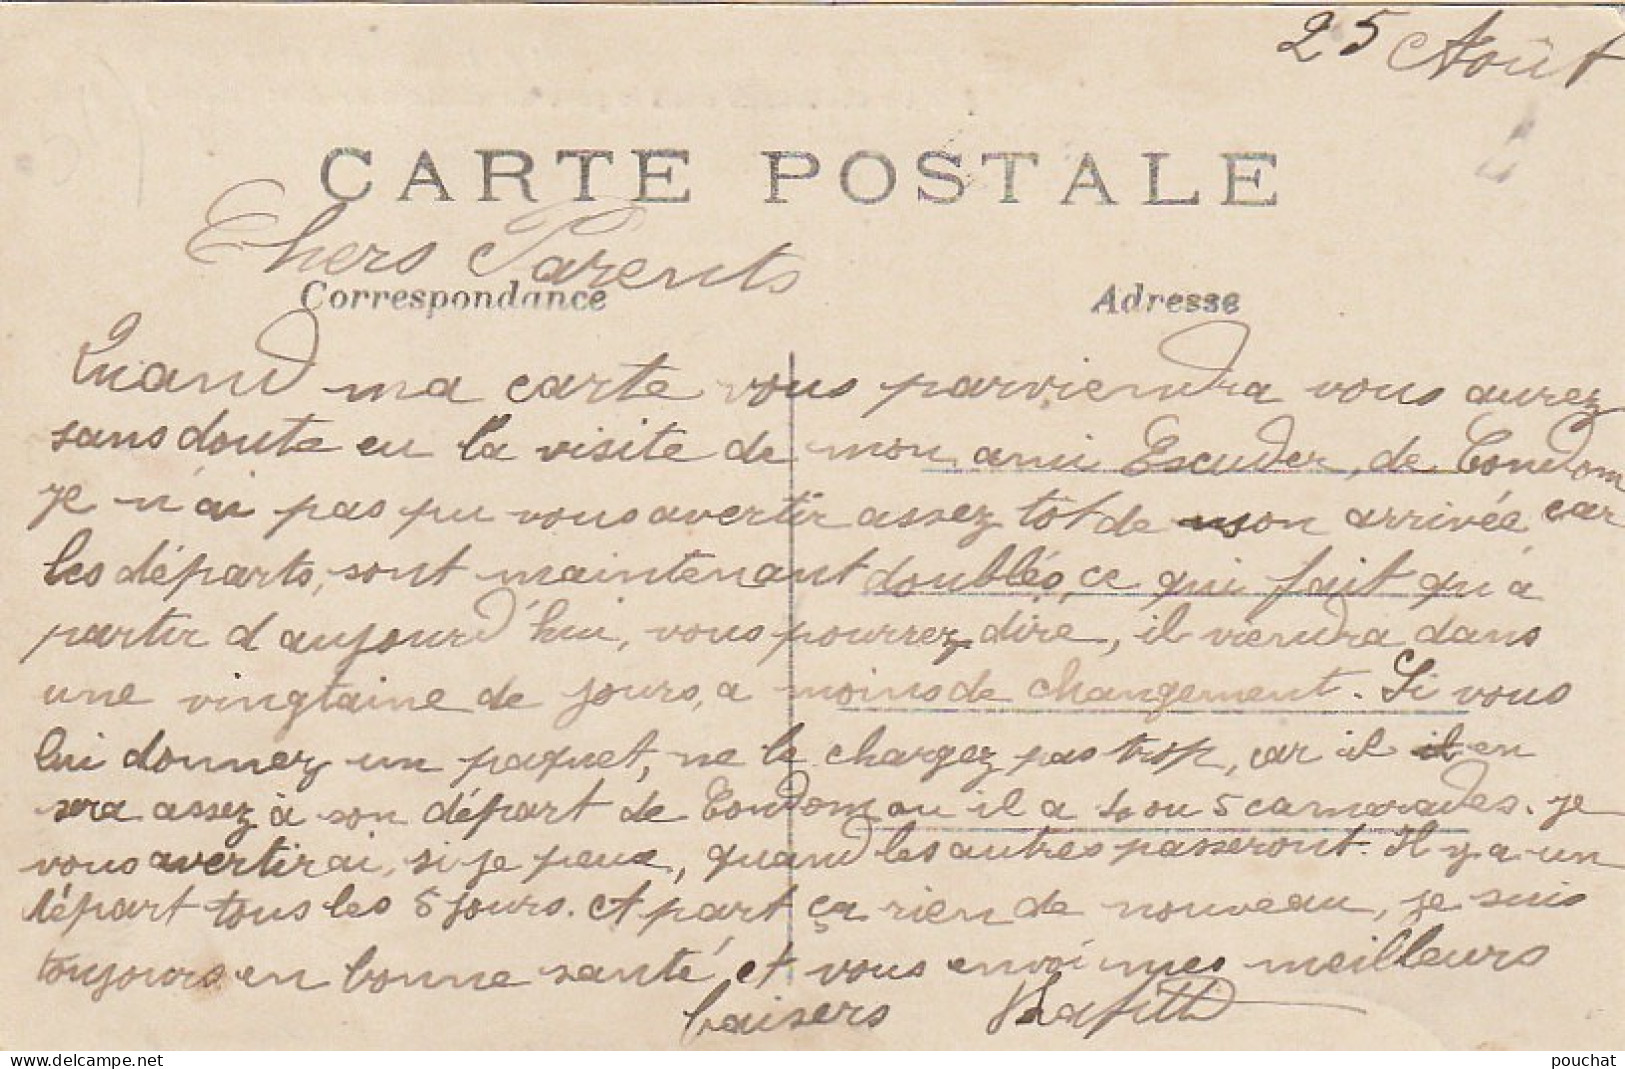 25 Août
CARTE POSTALE
Chers Parents
Correspondance
Adresse
Quand ma carte vous parviendra vous aurez
sans doute eu la visite de mon ami Escuder, de Condom
je n'ai pas pu vous avertir assez tôt de son arrivée car
les départs, sont maintenant doublés, ce qui fait qu'à
partir d'aujourd'hui, vous pourrez dire, il viendra dans
une vingtaine de jours, a moins de changement. Si vous
lui donnez un paquet, ne le chargez pas trop, car il en
sera assez à son départ de Condom ou il a 4 ou 5 camarades. je
vous avertirai, si je peux, quand les autres passeront. Il y a un
départ tous les 5 jours. Apart ça rien de nouveau, je suis
toujours en bonne santé, et vous envoi mes meilleurs
baisers
pouchat
delcampe.net